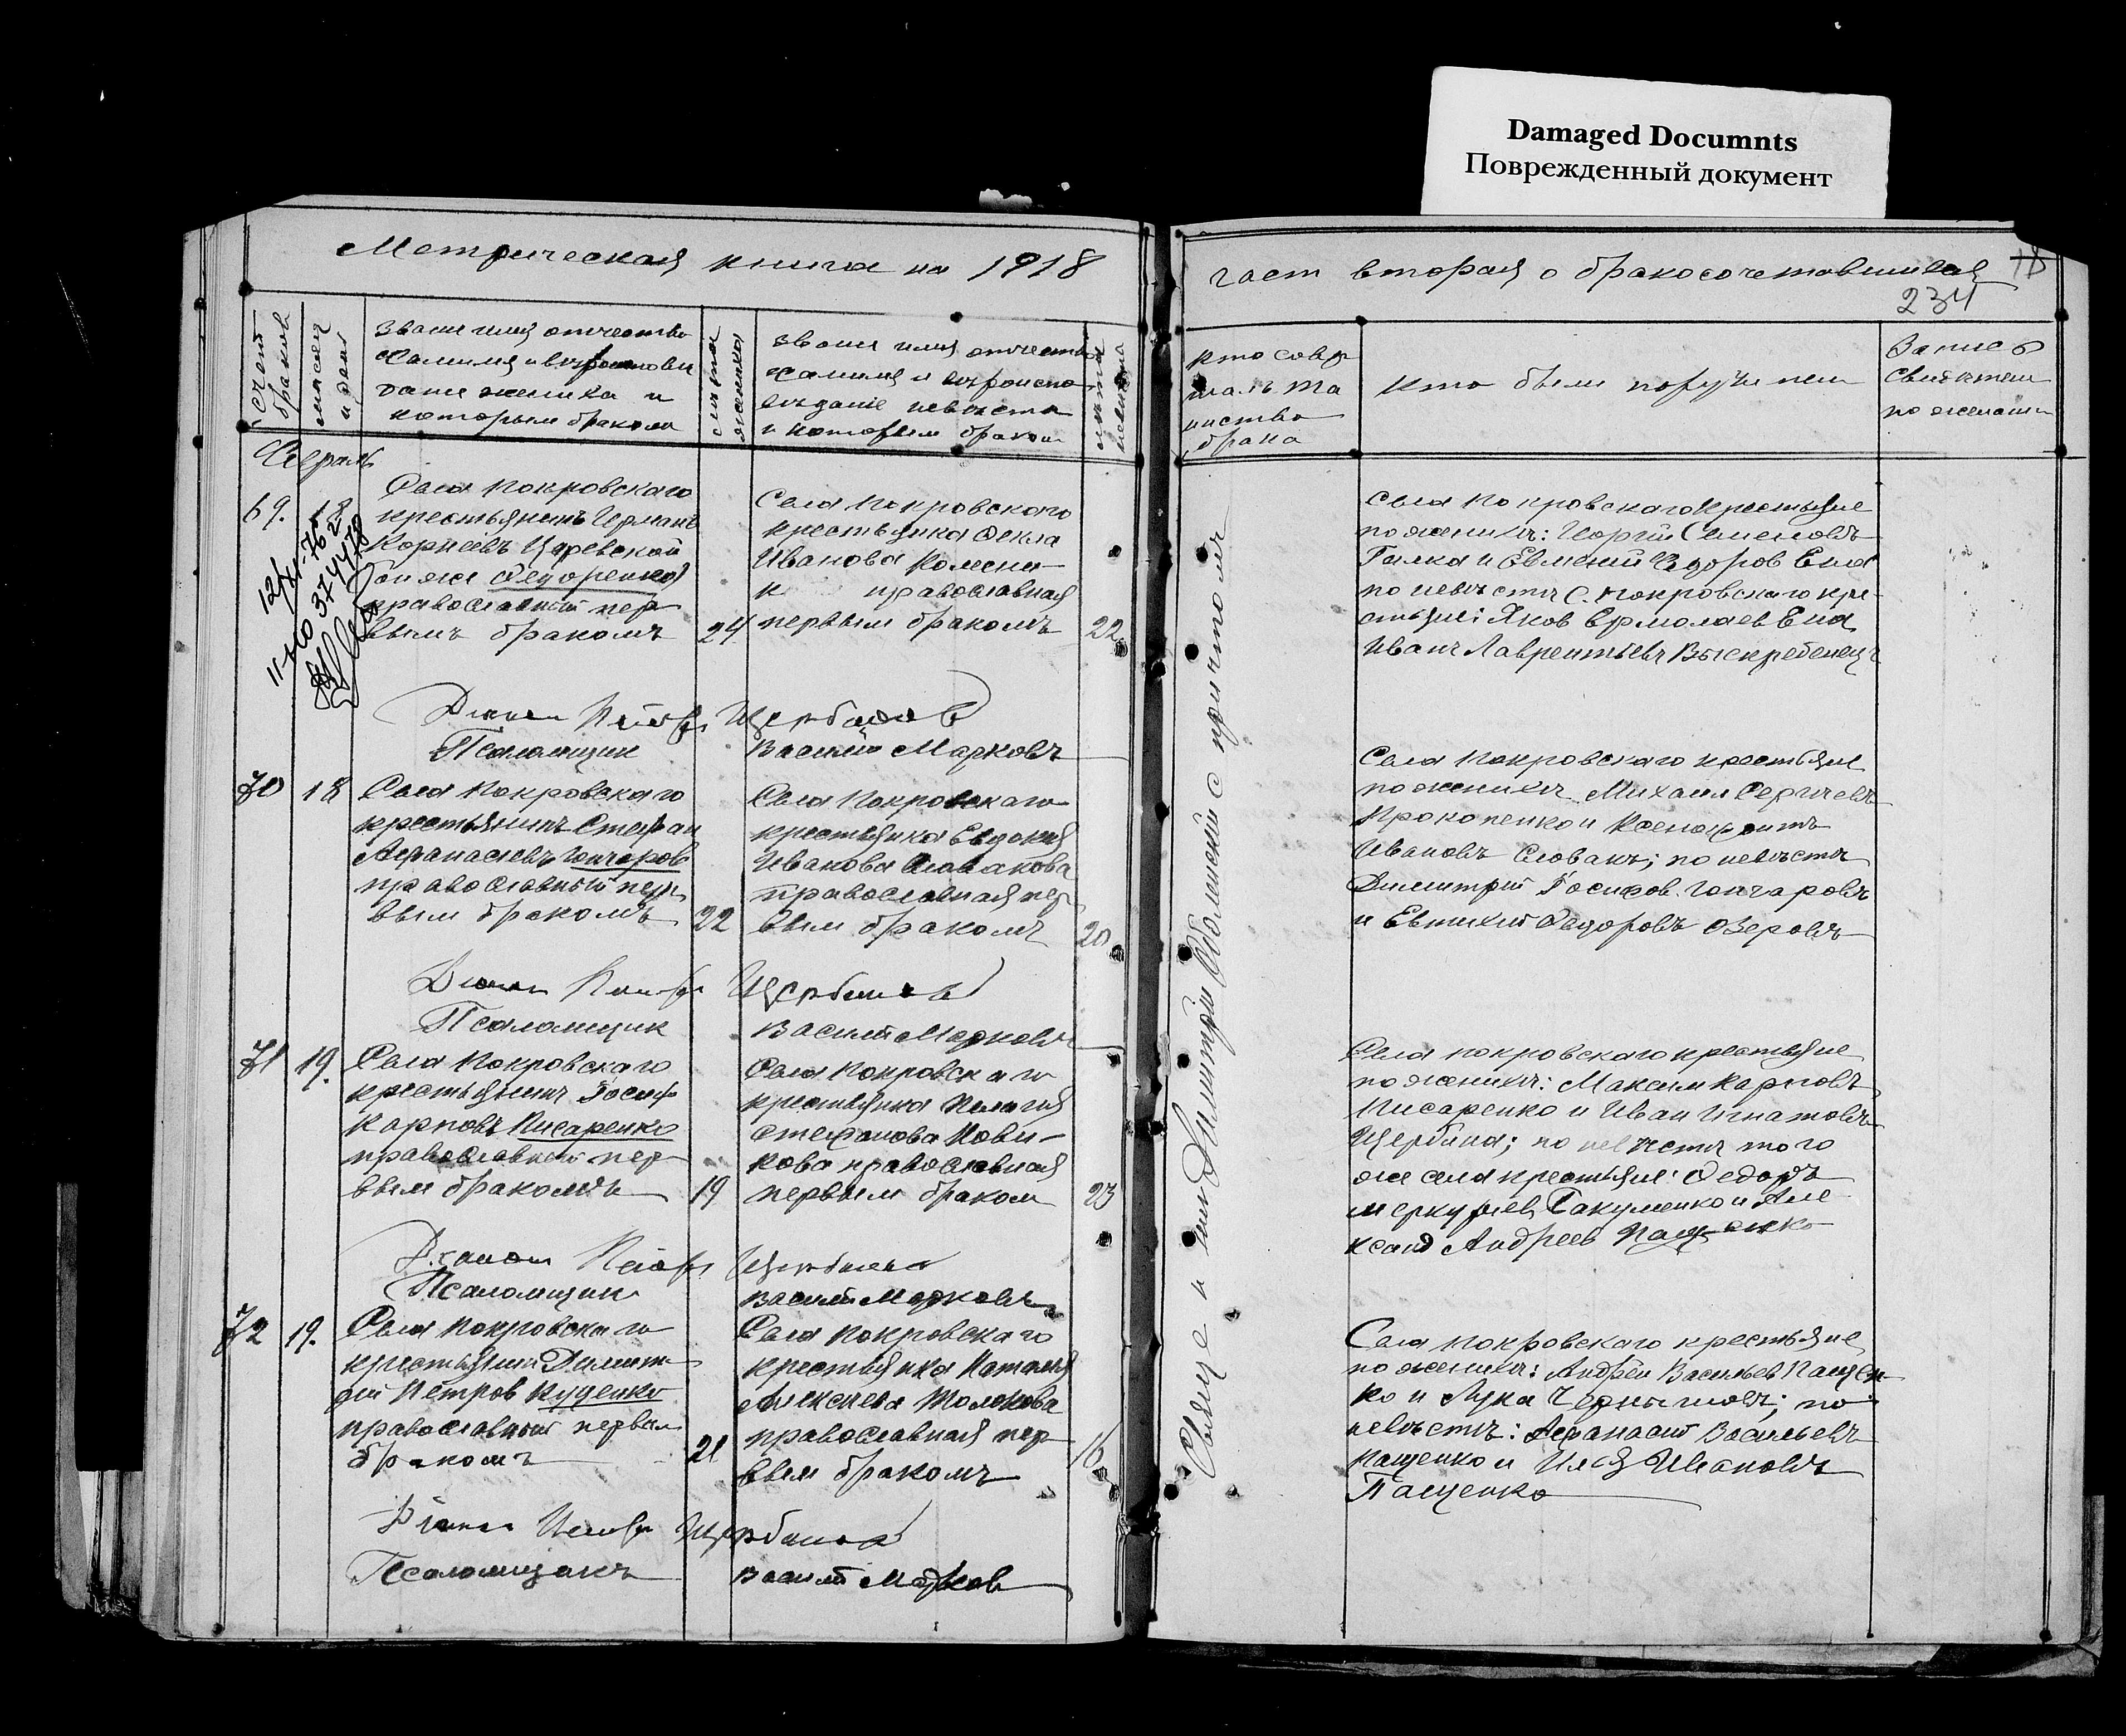 Damaged Documnts
Поврежденный документ
Метрическая книга на 1918
част вторая о бракосочетавшихся
234
счет браков
месяц и день
звание имя отчество
фамилия и вероиспове
дание жениха и
которым браком
лета жениха
звание имя отчество
фамилия и вероиспо
веданіе невесты
и которым браком
лета невесты
кто совер
шалъ та
инство
брака
кто были поручители
Запись
свидетели
по желани
Февраль
69.
18
Села Покровскаго
крестьянинъ Герман
Корнеевъ Царевской
он же Федоренко
православный пер
вымъ бракомъ
24
Села Покровского
крестьянка Фекла
Иванова Колесни
к православная
первым бракомъ
22
12/XI-76
11-ЮО 374478
Села Покровскаго крестьяне
по женихе: Георгій Семеновъ
Галка и Евменій Федоров Ена
по невесте с. Покровскаго кре
стьяне: Яков Ермолаев Ена
Иванъ Лаврентьевъ Выскребенец
Діакон Петръ Щербаков
Псаломщик Василій Марковъ
70
18
Села Покровскаго
крестьянинъ Стефан
Афанасіевъ Гончаров
православный пер
вым бракомъ
22
Села Покровскаго
крестьянка Евдокия
Иванова Словакова
православная пер
вым бракомъ
20
Села Покровскаго крестьяне
по женихе Михаил Сергиевъ
Прокопенко и Ксенофонтъ
Ивановъ Словакъ; по невесте
Димитрій Іосифов Гончаровъ
и Евтихій Федоровъ Озеровъ
Діакон Петръ Щербаков
Псаломщик Василій Марковъ
71
19.
Села Покровскаго
крестьянинъ Іосиф
Карповъ Писаренко
православный пер
вым бракомъ
19
Села Покровскаго
крестьянка Пелагия
Стефанова Нови-
кова православная
первым браком
23
Села Покровскаго крестьяне
по женихе: Максим Карповъ
Писаренко и Иван Игнатовъ
Щербина; по невесте того
же села крестьяне: Федоръ
Меркуриев Бакуменко и Але
ксанд Андреев Пащенко
Діакон Петръ Щербаков
Псаломщик Василій Марковъ
72
19.
Села Покровскаго
крестьянин Димит
рій Петров Куценко
православный первым
бракомъ
21
Села Покровскаго
крестьянка Наталья
Алексиева Толокова
православная пер
вым бракомъ
16
Села Покровскаго крестьяне
по женихе: Андрей Васильев Пащен
ко и Лука Чернышовъ; по
невесте: Афанасій Васильевъ
Пащенко и Илья Ивановъ
Пащенко
Діакон Петръ Щербаков
Псаломщикъ Василій Марков
Священникъ Димитрій Оболенскій с причтомъ